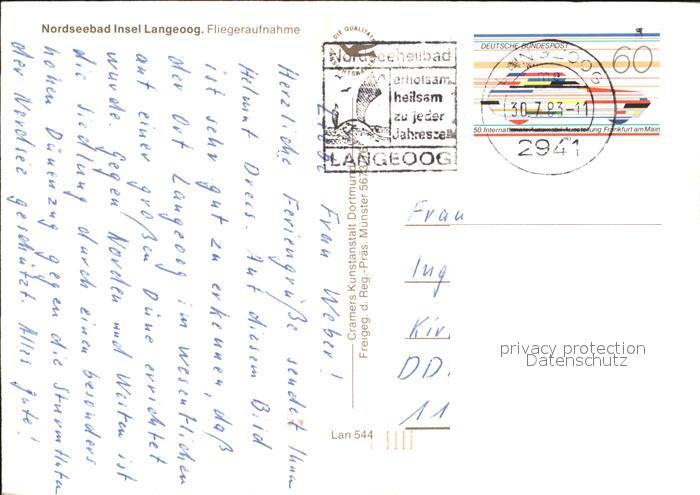 Nordseebad Insel Langeoog. Fliegeraufnahme
Liebe Frau Weber!
Herzliche Feriengrüße sendet Ihnen
Helmut Dreis. Auf diesem Bild
ist sehr gut zu erkennen, daß
der Ort Langeoog im wesentlichen
auf einer großen Düne errichtet
wurde. Gegen Norden und Westen ist
die Siedlung durch einen besonders
hohen Dünenzug gegen die Sturmfluten
der Nordsee geschützt. Alles Gute!
Cramers Kunstanstalt Dortmund
Freigeg. d. Reg.-Präs. Münster
Lan 544
DIE QUALITÄT
Nordseeheilbad
erholsam
heilsam
zu jeder
Jahreszeit
LANGEOOG
DEUTSCHE BUNDESPOST
60
50. Internationale Automobil-Ausstellung Frankfurt am Main
LANGEOOG
30.7.83-11
2941
Frau
Ing
Kir
DD
11
privacy protection
Datenschutz